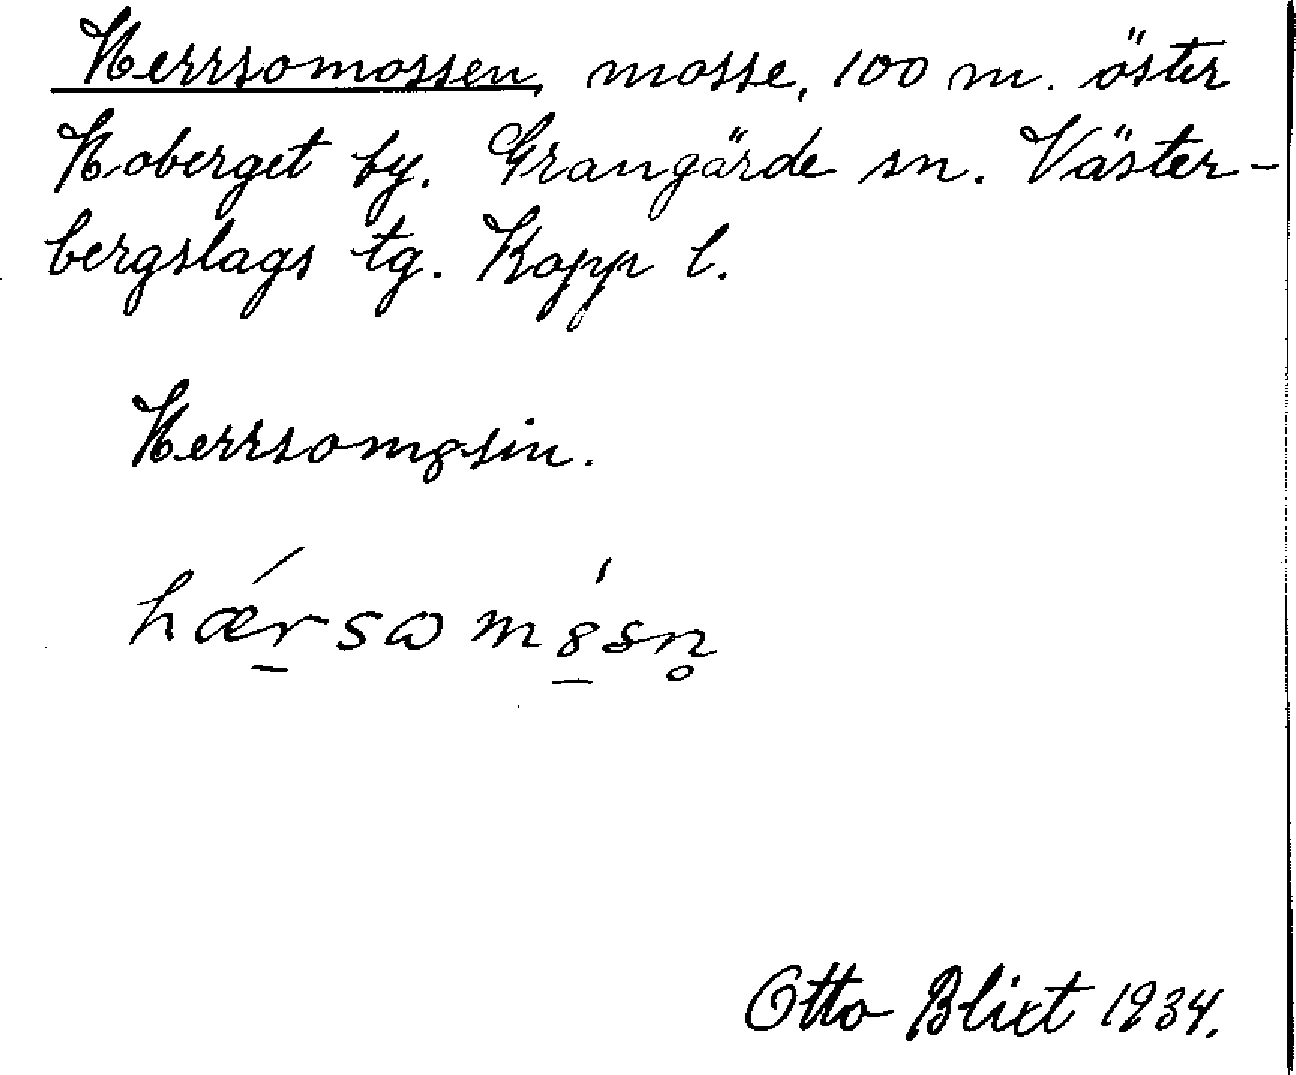 Herrsomossen, mosse, 100 m. öster
Hoberget by. Grangärde sn. Väster-
bergslags tg. Kopp l.
Herrsomȣsin.
hǽr̲sωmȣ̲́sn̥
Otto Blixt 1934.